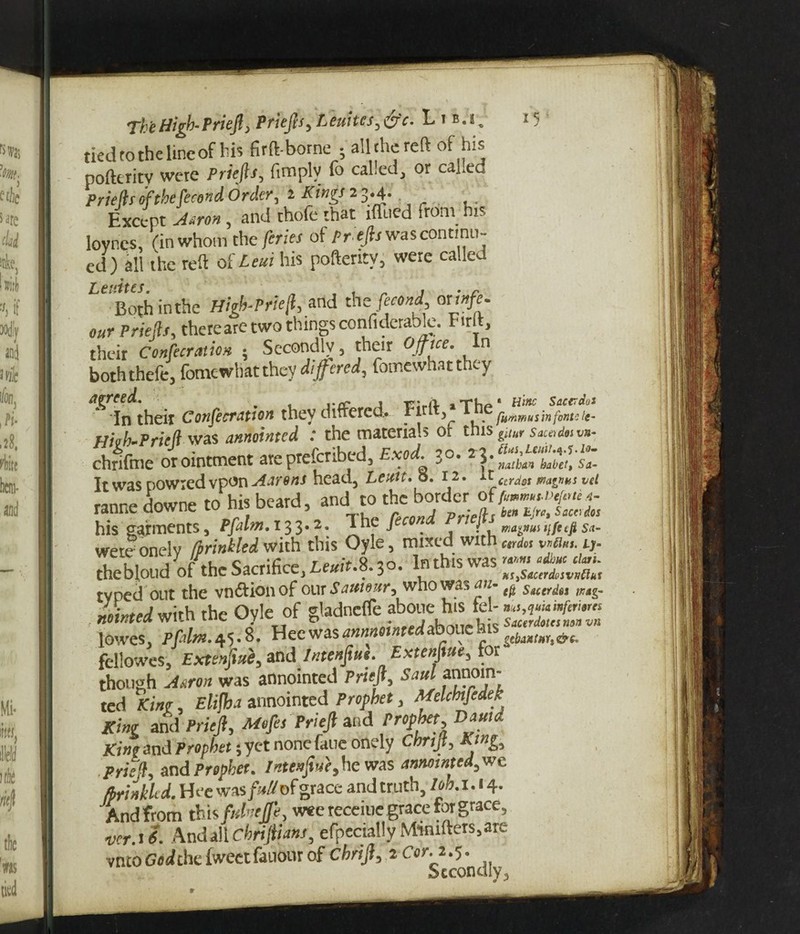 The High-Priest, Priests, Leuites, &c. LIB.1. 15
tied to the line of his first-borne ; all the rest of his
posterity were Priests, simply so called, or called
Priests of the second Order, 2 Kings 23.4.
Except Aaron, and those that issued from his
loynes, (in whom the series of Priests was continu-
ed) all the rest of Leui his posterity, were called
Leuites.
Both in the High-Priest, and the second, or infe-
our Priests, there are two things considerable. First,
their Consecration ; Secondly, their Office. In
both these, somewhat they differed, somewhat they
agreed.
In their Consecration they differed. First, a The
High-Priest was annointed : the materials of this
chrisme or ointment are prescribed, Exod. 30. 23.
It was powred vpon Aarons head, Leuit. 8. 12. It
ranne downe to his beard, and to the border of
his garments, Psalm. 133.2. The second Priests
were onely sprinkled with this Oyle, mixed with
the bloud of the Sacrifice, Leuit.8.30. In this was
typed out the vnction of our Sauiour, who was an-
nointed with the Oyle of gladnesse aboue his fel-
lowes, Psalm.45.8. Hee was annnointed aboue his
fellowes, Extensiuè, and Intensiuè. Extensiuè, for
though Aaron was annointed Priest, Saul annoin-
ted King, Elisha annointed Prophet, Melchisedek
King and Priest, Moses Priest and Prophet, Dauid
King and Prophet ; yet none saue onely Christ, King,
Priest, and Prophet. Intensiuè, he was annointed, we
sprinkled. Hee was full of grace and truth, Ioh.1.14.
And from this fulnesse, wee receiue grace for grace,
ver.16. And all Christians, especially Ministers, are
vnto God the sweet sauour of Christ, 2 Cor. 2.5.
Secondly,
a Hinc Sacerdos
summus in fonte le-
gitur Sacerdos vn-
ctus, Leuit.4.5. Io-
nathan habet, Sa-
cerdos magnus vel
summus. Deserte A-
ben Esra, Sacerdos
magnus ipse est Sa-
cerdos vnctus. Ly-
ranus adhuc clari-
us, Sacerdos vnctus
est Sacerdos mag-
nus, quia inferiores
Sacerdotes non vn
gebantur, &c.